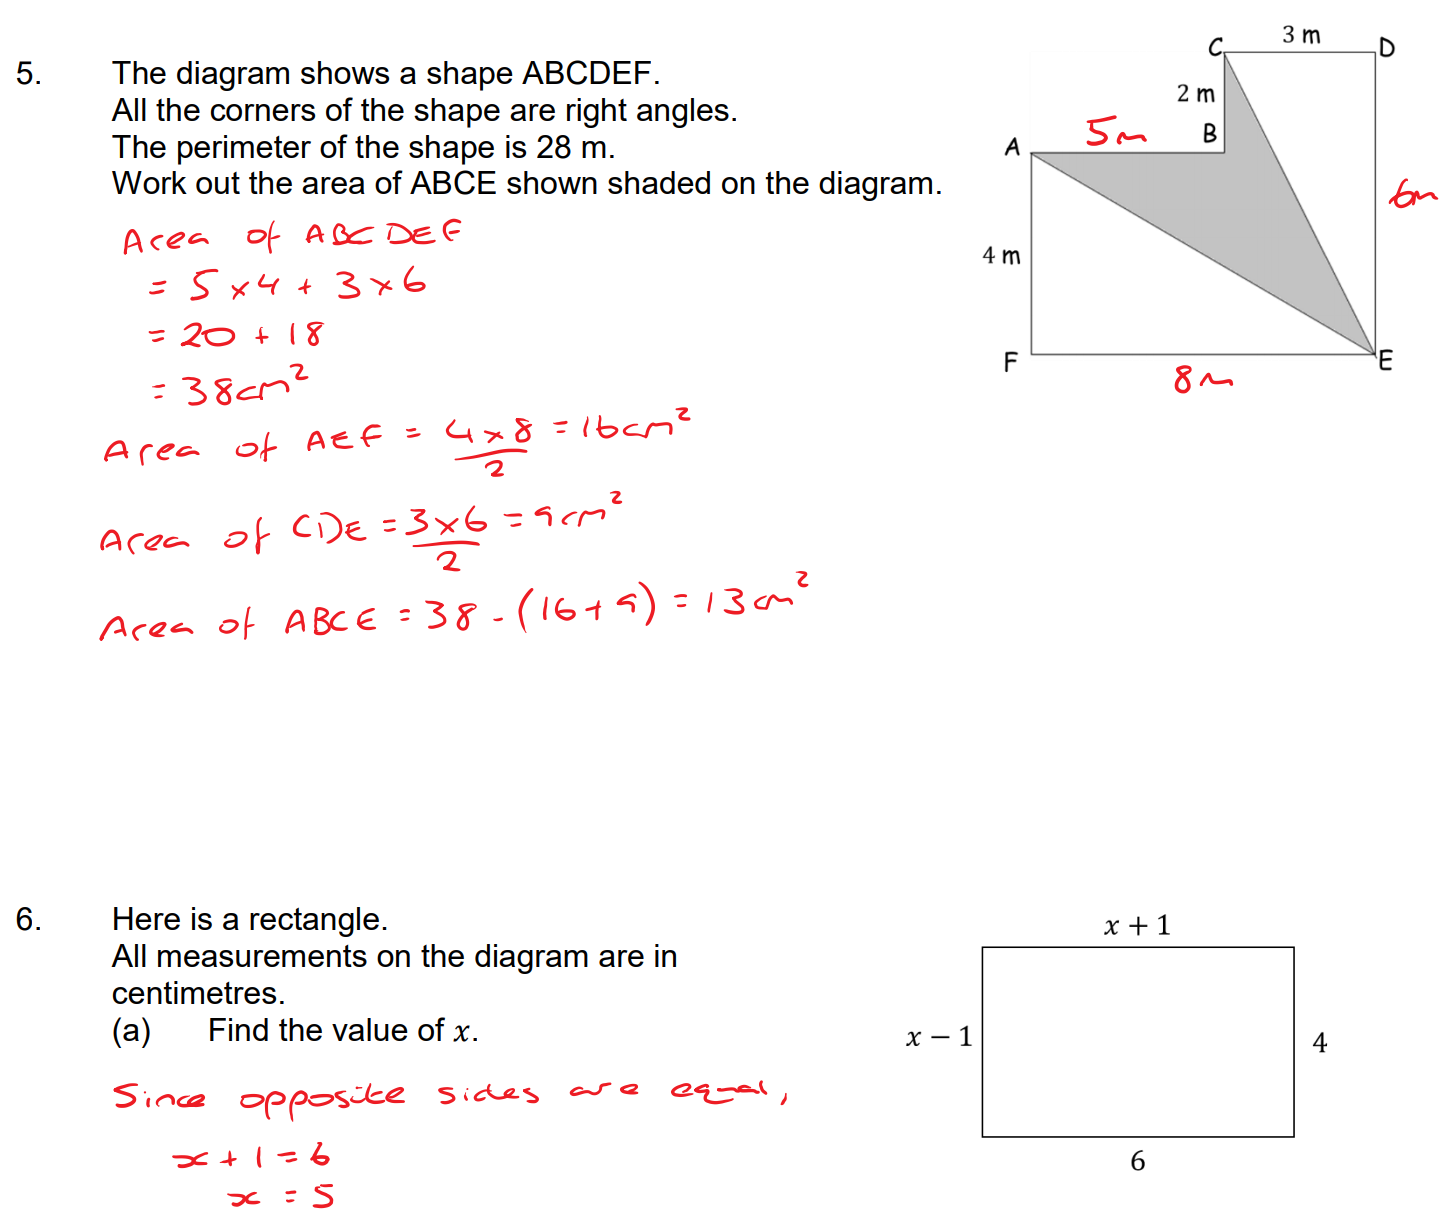 5. The diagram shows a shape ABCDEF.
All the corners of the shape are right angles.
The perimeter of the shape is 28 m.
Work out the area of ABCE shown shaded on the diagram.
C 3 m D
2 m
A 5m B
6m
4 m
F 8m E
Area of ABCDEF
= 5 × 4 + 3 × 6
= 20 + 18
= 38cm²
Area of AEF = 4 × 8 / 2 = 16cm²
Area of CDE = 3 × 6 / 2 = 9cm²
Area of ABCE = 38 - (16 + 9) = 13cm²
6. Here is a rectangle.
All measurements on the diagram are in
centimetres.
(a) Find the value of x.
x + 1
x − 1
4
6
Since opposite sides are equal,
x + 1 = 6
x = 5